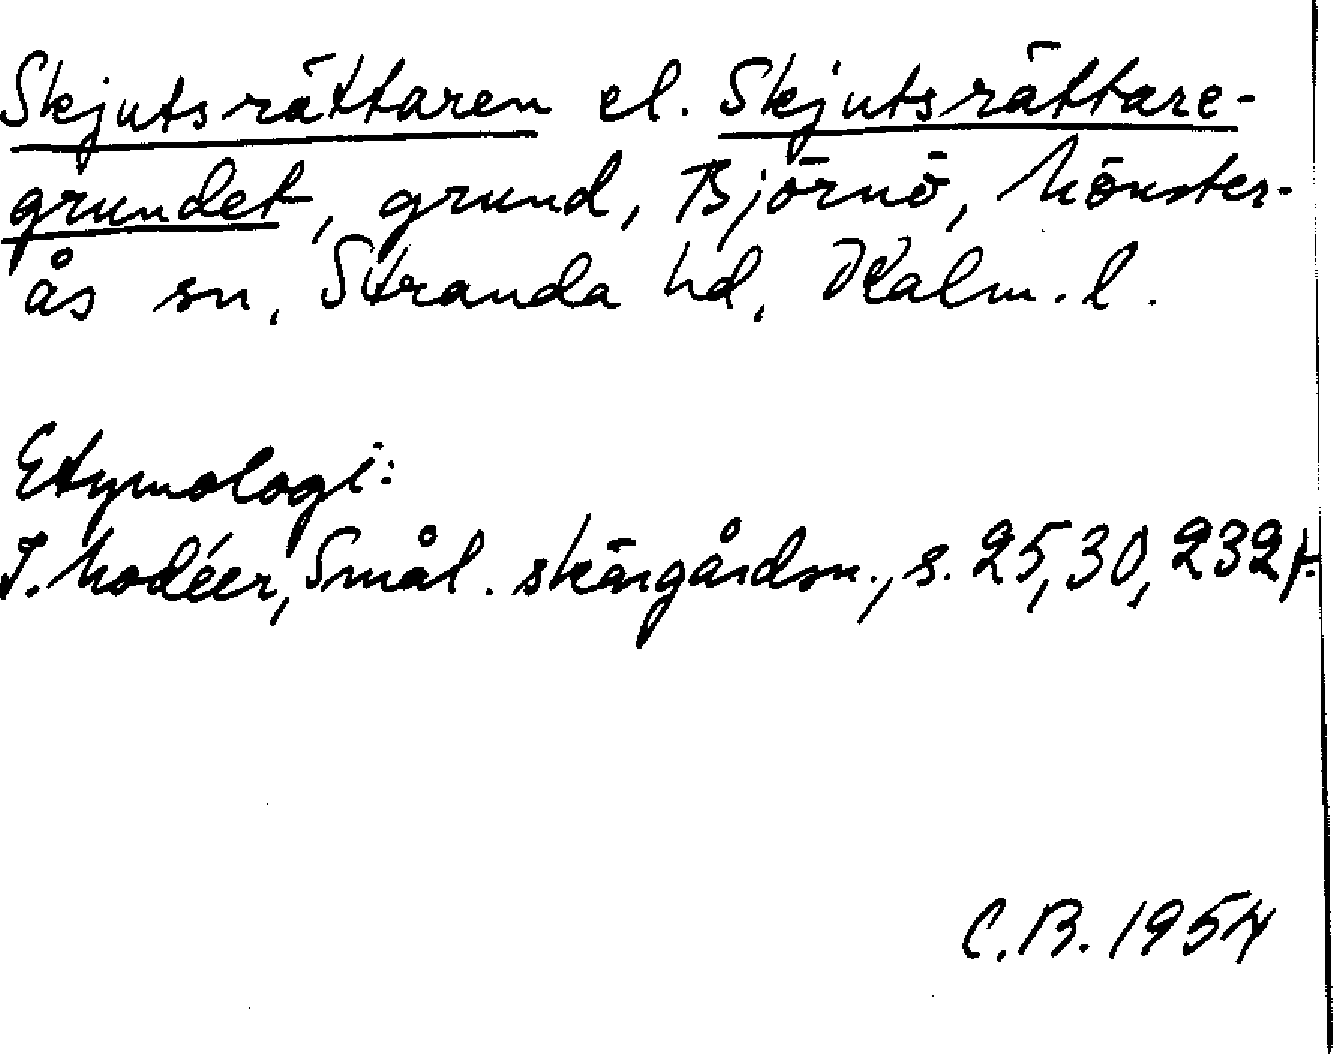 Skjutsrättaren el. Skjutsrättare-
grundet, grund, Björnö, Mönster-
ås sn, Stranda hd, Kalm. l.
Etymologi:
I. Modéer, Smål. skärgårdsn., s. 25, 30, 232f.
C.B. 1954